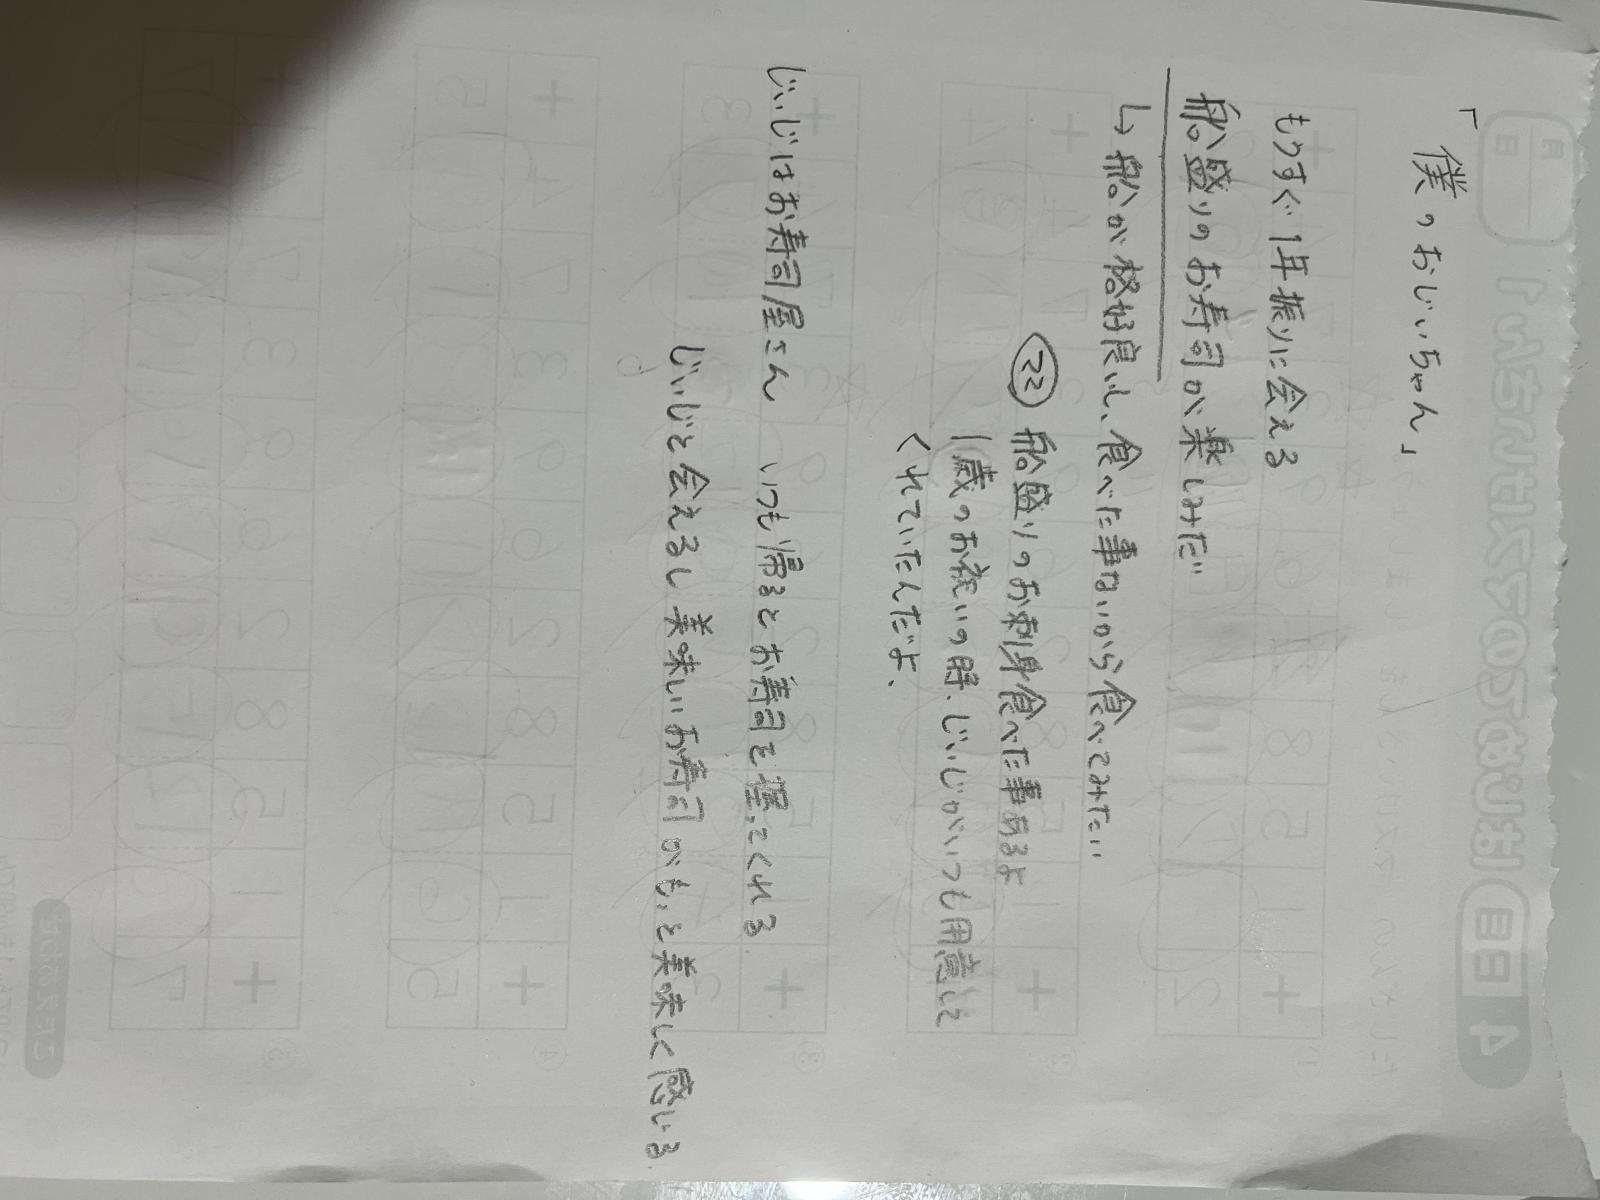 「僕のおじいちゃん」
もうすぐ1年振りに会える
船盛りのお寿司が楽しみだ
↳船が格好良いし、食べた事ないから食べてみたい
ママ 船盛りのお刺身食べた事あるよ
1歳のお祝いの時、じいじがいつも用意して
くれていたんだよ、
じいじはお寿司屋さん いつも帰るとお寿司を握ってくれる
じいじと会えるし美味しいお寿司がもっと美味しく感じる